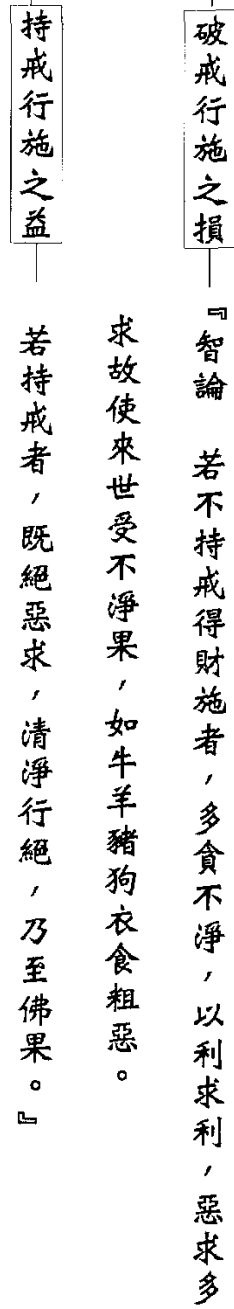 破戒行施之損
『智論　若不持戒得財施者，多貪不淨，以利求利，惡求多
求故使來世受不淨果，如牛羊豬狗衣食粗惡。
持戒行施之益
若持戒者，既絕惡求，清淨行絕，乃至佛果。』